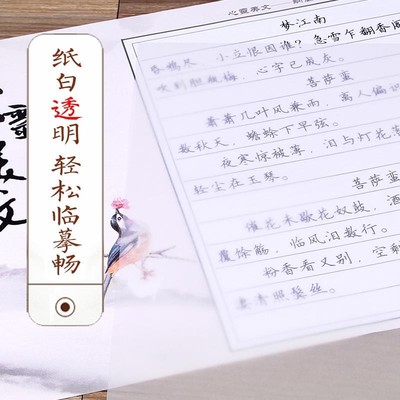 纸白透明 轻松临摹畅
心灵美文
梦江南
昏鸦尽，小立恨因谁？急雪乍翻香阁
吹到胆瓶梅，心字已成灰。
菩萨蛮
萧萧几叶风兼雨，离人偏识
数秋天，蟾蜍下早弦。
夜寒惊被薄，泪与灯花落
轻尘在玉琴。
菩萨蛮
催花未歇花奴鼓，酒
覆馀觞，临风泪数行。
粉香看又别，空剩
妻看照鬓丝。